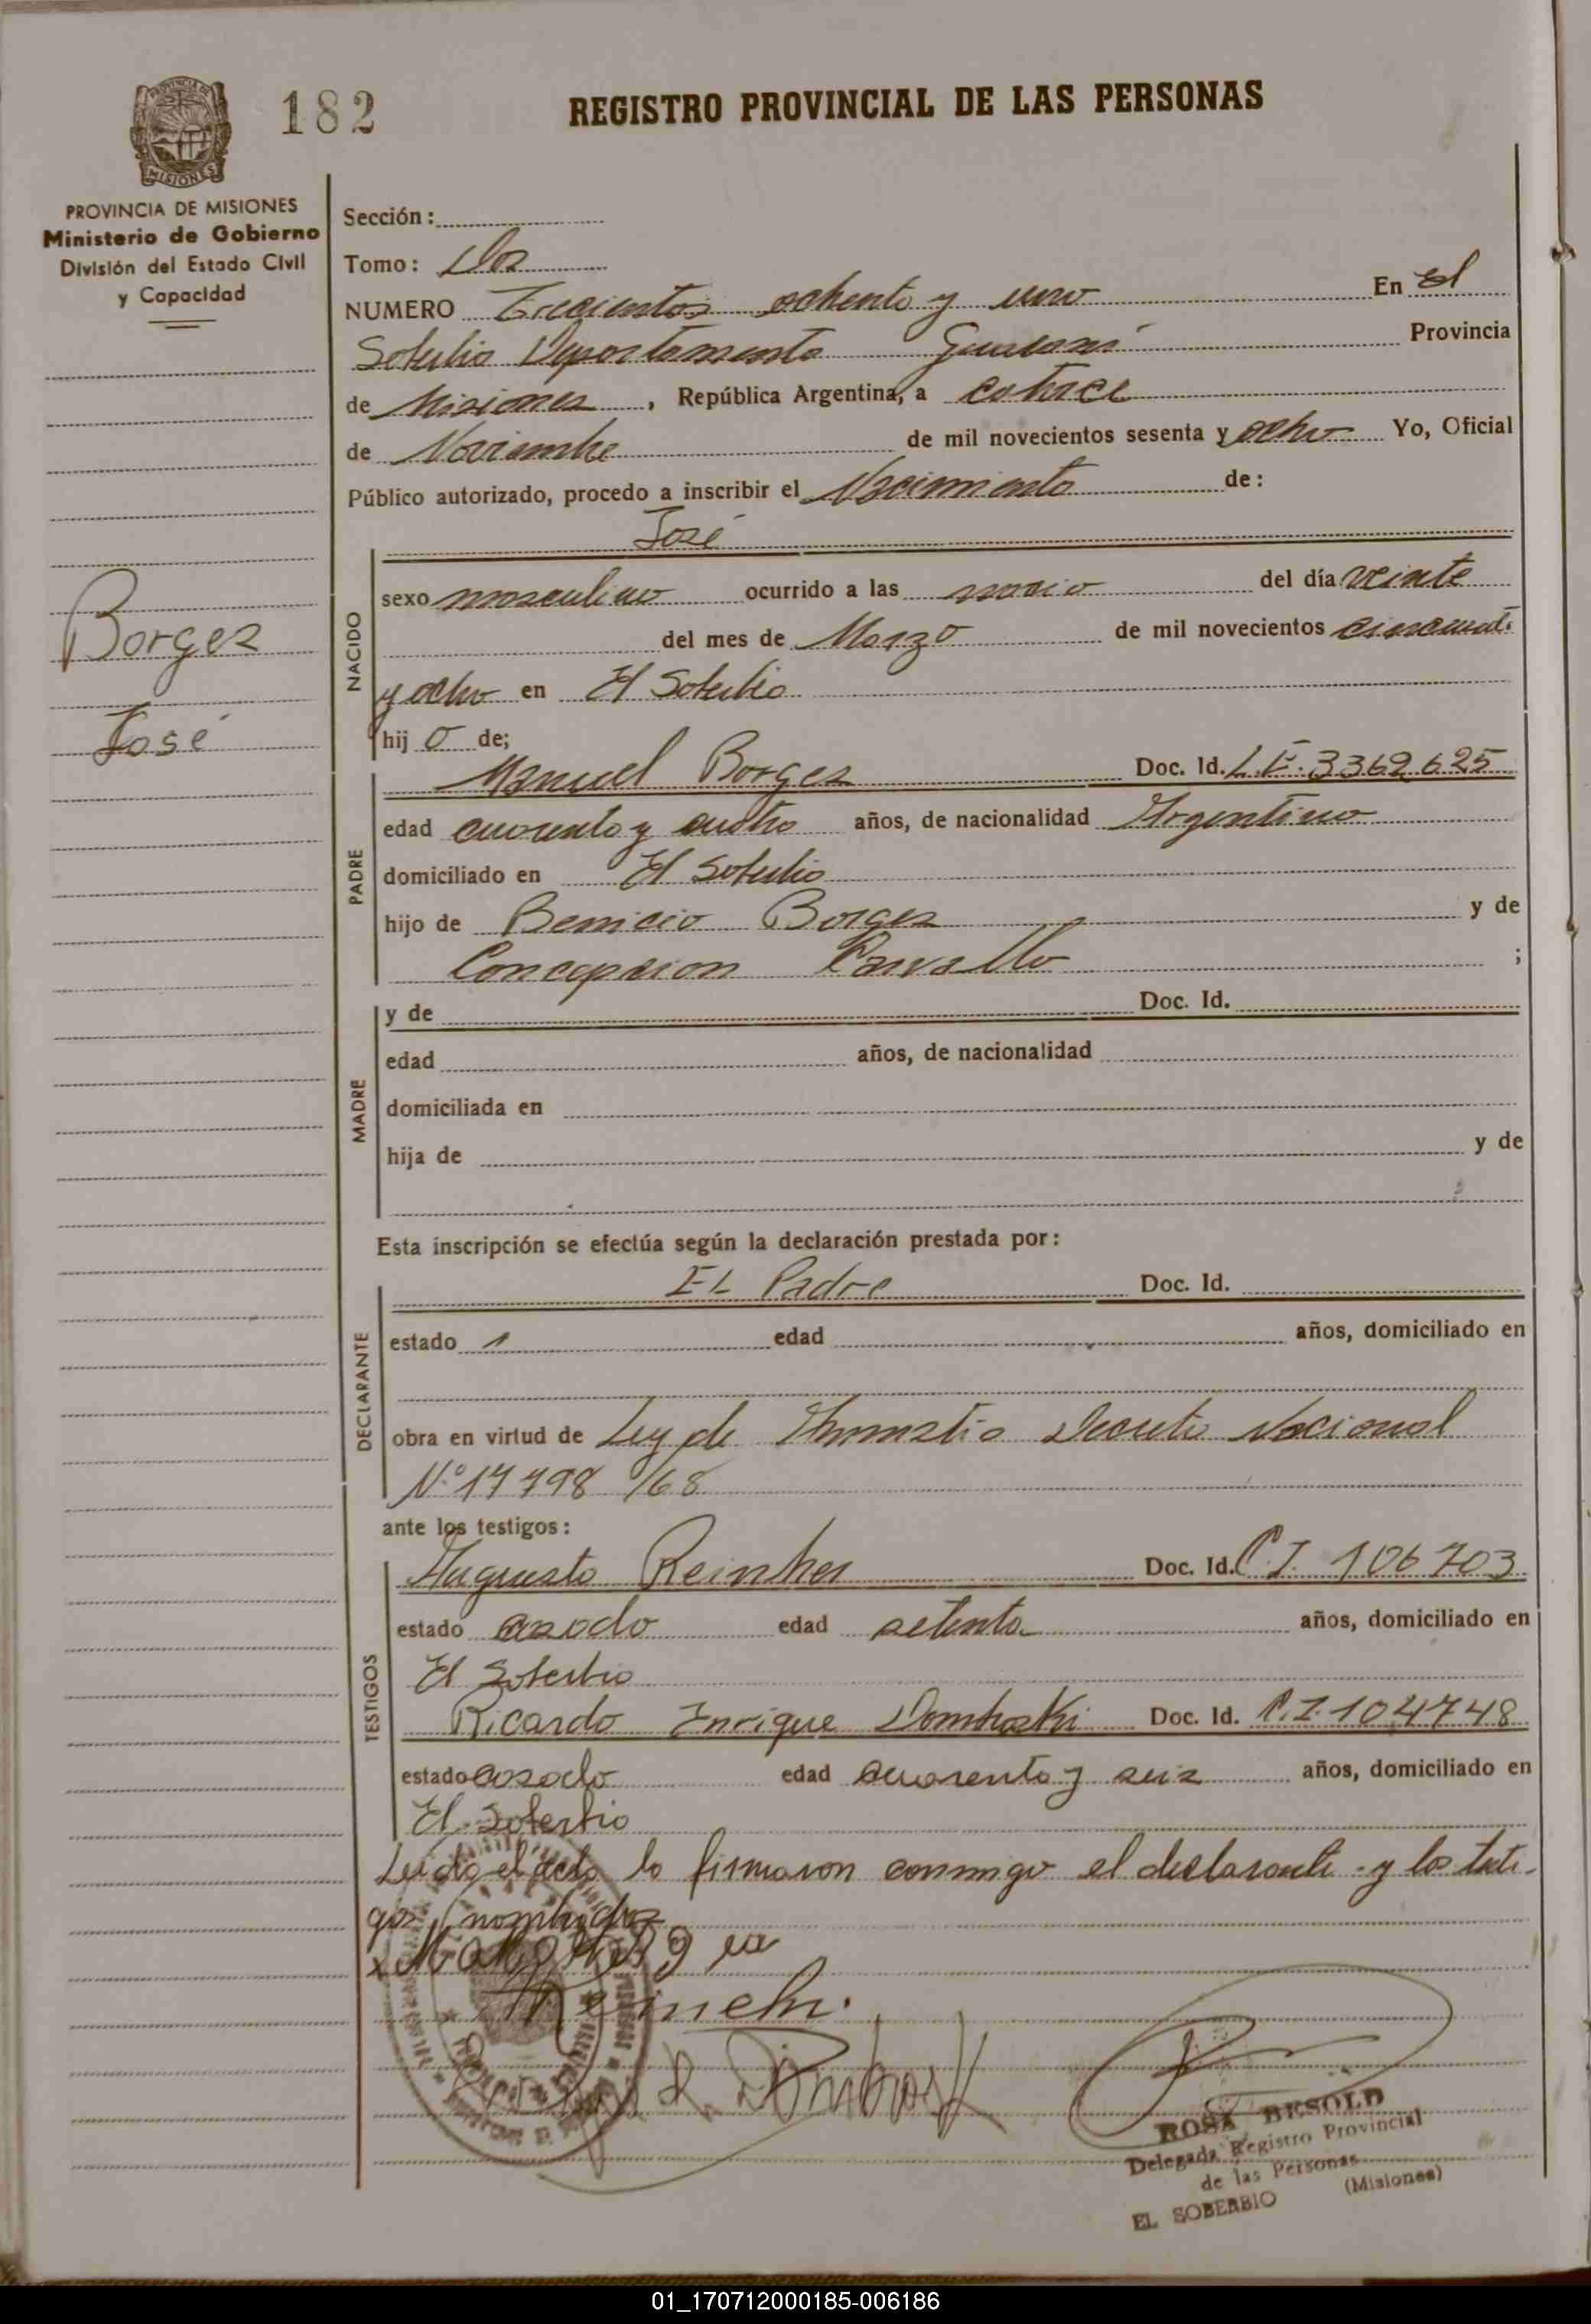 PROVINCIA DE MISIONES
182
REGISTRO PROVINCIAL DE LAS PERSONAS
PROVINCIA DE MISIONES
Ministerio de Gobierno
División del Estado Civil
y Capacidad
Borges
José
Sección:
Tomo: Dos
NUMERO Trecientos ochenta y uno En El
Soberbio Departamento Guarani Provincia
de Misiones, República Argentina, a catorce
de Noviembre de mil novecientos sesenta y ocho Yo, Oficial
Público autorizado, procedo a inscribir el Nacimiento de:
José
NACIDO
sexo masculino ocurrido a las del día veinte
del mes de Marzo de mil novecientos cincuenta
y ocho en El Soberbio
hijo de;
PADRE
Manuel Borges Doc. Id. L.E. 3362625
edad cuarenta y cuatro años, de nacionalidad Argentino
domiciliado en El Soberbio
hijo de Benicio Borges y de
Concepcion Carvallo ;
MADRE
y de Doc. Id.
edad años, de nacionalidad
domiciliada en
hija de y de
Esta inscripción se efectúa según la declaración prestada por:
DECLARANTE
EL Padre Doc. Id.
estado edad años, domiciliado en
obra en virtud de Ley de Amnistia Decreto Nacional
Nº 17798/68
ante los testigos:
TESTIGOS
Augusto Doc. Id. C.I. 106703
estado casado edad setenta años, domiciliado en
El Soberbio
Ricardo Enrique Domhoski Doc. Id. C.I. 104748
estado casado edad cuarenta y seis años, domiciliado en
El Soberbio
Leida el acta la firmaron conmigo el declarante y los testi-
gos nombrados
ROSA BESOLD
Delegada Registro Provincial
de las Personas
EL SOBERBIO (Misiones)
01_170712000185-006186